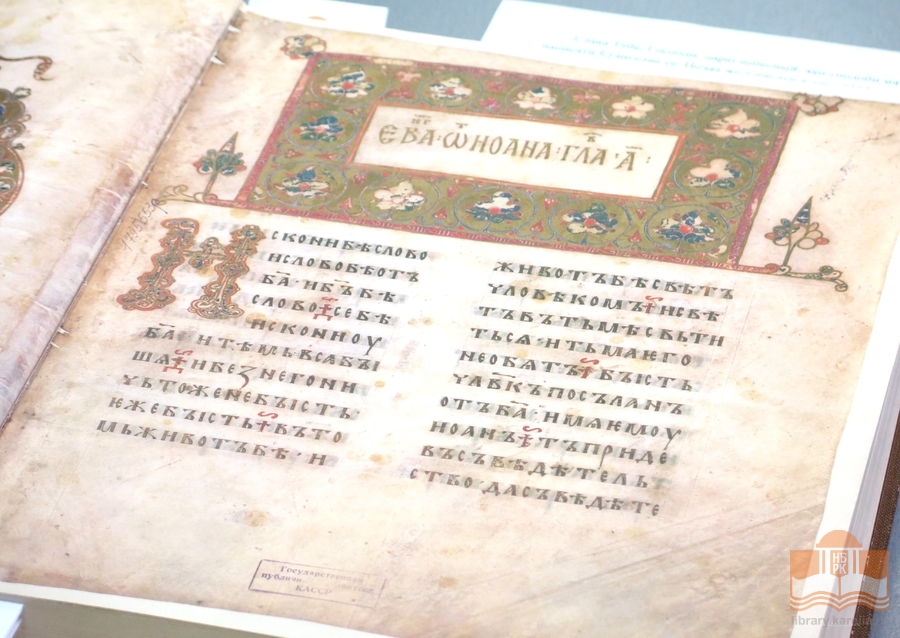 ЕВАНГ҃·Ѿ ИОАНА·ГЛА·А҃:
ИСКОНИ БѢ СЛОВО
И СЛОВО БѢ ОТЪ
БА҃· И БЪ БѢ
СЛОВО· СЕ БѢ
ИСКОНИ ОУ
БА҃· И ТѢМЬ ВСѦ БЪІ
ШѦ· И БЕЗ НЕГО НИ
ЧЬТОЖЕ НЕ БЪІСТЬ·
ЕЖЕ БЪІСТЬ· ВЪ ТО
МЬ ЖИВОТЪ БѢ· И
ЖИВОТЪ БѢ СВѢТЪ
ЧЛОВѢКОМЪ· И СВѢ
ТЪ ВЪ ТЬМѢ СВЬТИ
ТЬСѦ· И ТЬМА ѤГО
НЕ ОБѦТЪ· БЪІСТЬ
ЧЛВ҃КЪ ПОСЪЛАНЪ
ОТЪ БА҃· ИМѦ ѤМОУ
ИОАНЪ· ТЪ ПРИДЕ
ВЪ СЪВѢДѢТЕЛЬ
СТВО· ДА СЪВѢДѢТЕ
Государственная
публичн.
КАССР
НБ
РК
library.karelia